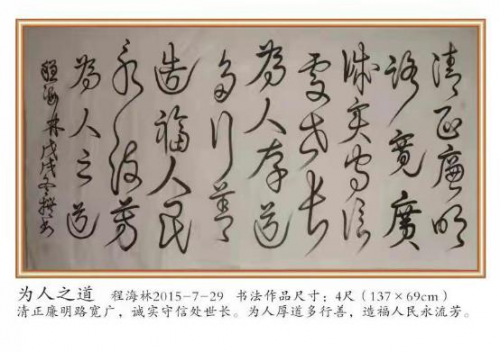 清正廉明
路寬廣
诚实守信
處世长
為人厚道
多行善
造福人民
永流芳
為人之道
程海林戊戌冬撰书
为人之道 程海林2015-7-29 书法作品尺寸：4尺（137×69cm）
清正廉明路宽广，诚实守信处世长。为人厚道多行善，造福人民永流芳。